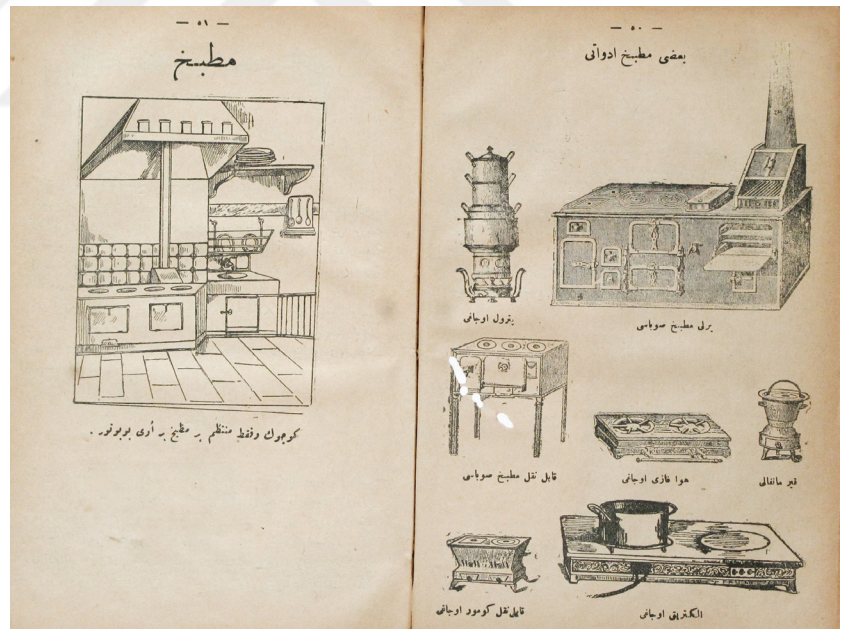 — ٥٠ —
بعضی مطبخ ادواتی
پترول اوجاغی
یرلی مطبخ صوباسی
قابل نقل مطبخ صوباسی
هوا غازی اوجاغی
قیر مانغالی
قابل نقل كومور اوجاغی
الكتریق اوجاغی
— ٥١ —
مطبـخ
كوچوك وفقط منتظم بر مطبخ بر أوی